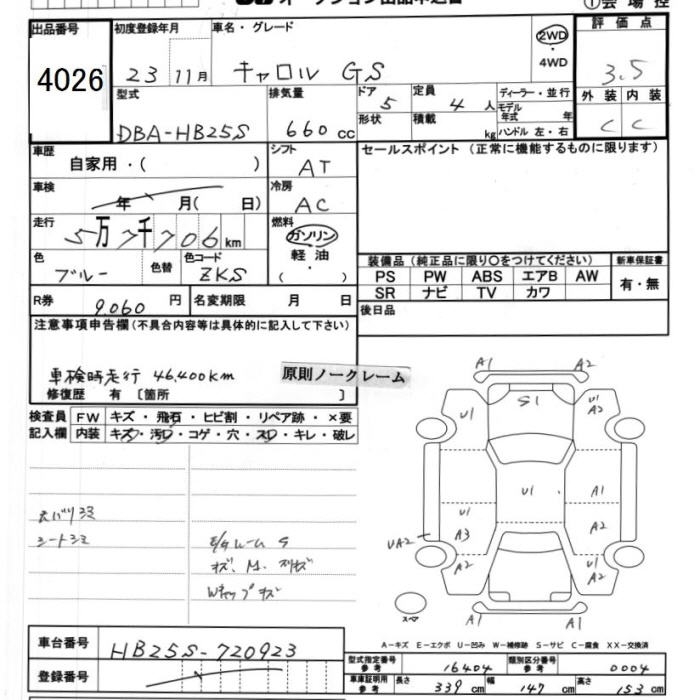 オークション出品申込書
①会場控
出品番号 4026
初度登録年月 23 11月
車名・グレード キャロル GS
2WD・4WD
評価点 3.5
型式 DBA-HB25S
排気量 660cc
ドア 5
定員 4人
ディーラー・並行
形状
積載 kg
モデル年式 年
ハンドル 左・右
外装 C
内装 C
車歴 自家用・( )
シフト AT
セールスポイント (正常に機能するものに限ります)
車検 年 月( 日)
冷房 AC
走行 5万7千706km
燃料 ガソリン 軽油・( )
色 ブルー
色替
色コード ZKS
装備品 (純正品に限り○をつけてください)
新車保証書
PS PW ABS エアB AW
SR ナビ TV カワ
有・無
R券 9,060円
名変期限 月 日
後日品
注意事項申告欄(不具合内容等は具体的に記入して下さい)
車検時走行 46,400km
原則ノークレーム
修復歴 有 〔箇所 〕
検査員記入欄
FW キズ・飛石・ヒビ割・リペア跡・×要
内装 キズ・汚レ・コゲ・穴・スレ・キレ・破レ
天バリシミ
シートシミ
キズ、M、スリキズ
Wキャップキズ
A1 A2
U1 S1 U1 A2
U1 A1
U1 A3 A2
UA2 A2 U1 A2
A1 A1
スペア
A-キズ E-エクボ U-凹み W-補修跡 S-サビ C-腐食 XX-交換済
車台番号 HB25S-720923
登録番号
型式指定番号 参考 16404
類別区分番号 参考 0004
車庫証明用 参考 長さ 339cm 幅 147cm 高さ 153cm